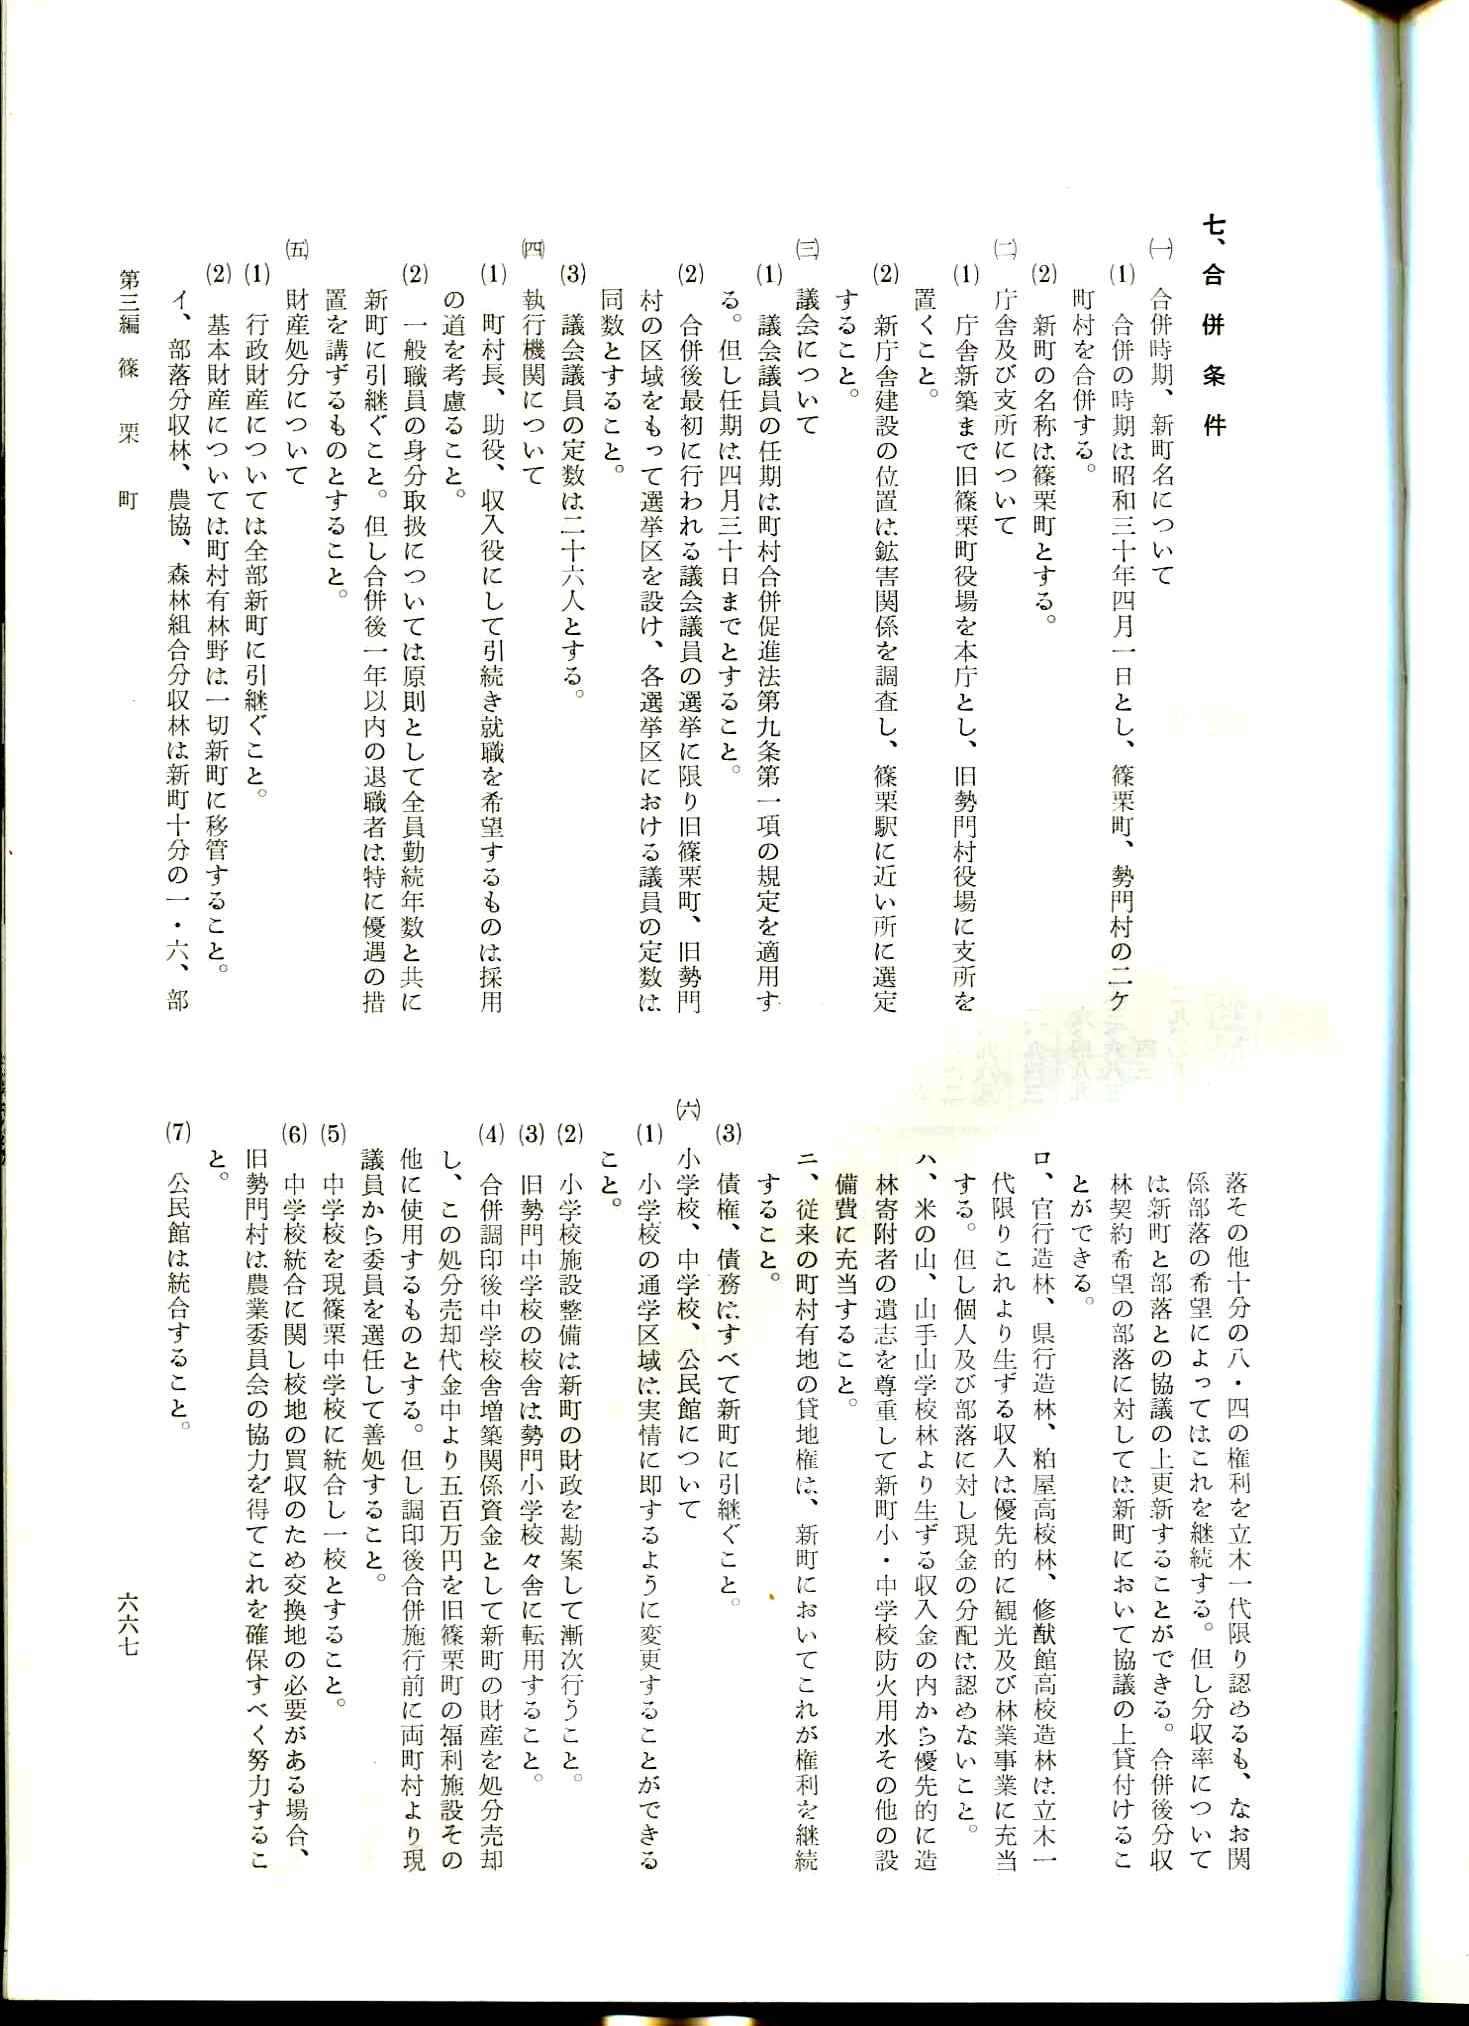 七、合併条件
㈠　合併時期、新町名について
(1)　合併の時期は昭和三十年四月一日とし、篠栗町、勢門村の二ケ
町村を合併する。
(2)　新町の名称は篠栗町とする。
㈡　庁舎及び支所について
(1)　庁舎新築まで旧篠栗町役場を本庁とし、旧勢門村役場に支所を
置くこと。
(2)　新庁舎建設の位置は鉱害関係を調査し、篠栗駅に近い所に選定
すること。
㈢　議会について
(1)　議会議員の任期は町村合併促進法第九条第一項の規定を適用す
る。但し任期は四月三十日までとすること。
(2)　合併後最初に行われる議会議員の選挙に限り旧篠栗町、旧勢門
村の区域をもって選挙区を設け、各選挙区における議員の定数は
同数とすること。
(3)　議会議員の定数は二十六人とする。
㈣　執行機関について
(1)　町村長、助役、収入役にして引続き就職を希望するものは採用
の道を考慮ること。
(2)　一般職員の身分取扱については原則として全員勤続年数と共に
新町に引継ぐこと。但し合併後一年以内の退職者は特に優遇の措
置を講ずるものとすること。
㈤　財産処分について
(1)　行政財産については全部新町に引継ぐこと。
(2)　基本財産については町村有林野は一切新町に移管すること。
イ、部落分収林、農協、森林組合分収林は新町十分の一・六、部
落その他十分の八・四の権利を立木一代限り認めるも、なお関
係部落の希望によってはこれを継続する。但し分収率について
は新町と部落との協議の上更新することができる。合併後分収
林契約希望の部落に対しては新町において協議の上貸付けるこ
とができる。
ロ、官行造林、県行造林、粕屋高校林、修猷館高校造林は立木一
代限りこれより生ずる収入は優先的に観光及び林業事業に充当
する。但し個人及び部落に対し現金の分配は認めないこと。
ハ、米の山、山手山学校林より生ずる収入金の内から優先的に造
林寄附者の遺志を尊重して新町小・中学校防火用水その他の設
備費に充当すること。
ニ、従来の町村有地の貸地権は、新町においてこれが権利を継続
すること。
(3)　債権、債務はすべて新町に引継ぐこと。
㈥　小学校、中学校、公民館について
(1)　小学校の通学区域は実情に即するように変更することができる
こと。
(2)　小学校施設整備は新町の財政を勘案して漸次行うこと。
(3)　旧勢門中学校の校舎は勢門小学校々舎に転用すること。
(4)　合併調印後中学校舎増築関係資金として新町の財産を処分売却
し、この処分売却代金中より五百万円を旧篠栗町の福利施設その
他に使用するものとする。但し調印後合併施行前に両町村より現
議員から委員を選任して善処すること。
(5)　中学校を現篠栗中学校に統合し一校とすること。
(6)　中学校統合に関し校地の買収のため交換地の必要がある場合、
旧勢門村は農業委員会の協力を得てこれを確保すべく努力するこ
と。
(7)　公民館は統合すること。
第三編　篠栗町
六六七